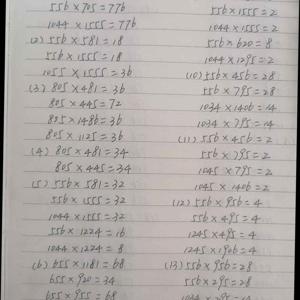 556 × 705 = 776
1044 × 1555 = 776
(2) 556 × 581 = 18
556 × 1555 = 18
1055 × 1555 = 36
(3) 805 × 481 = 36
805 × 445 = 72
805 × 1486 = 36
805 × 1125 = 36
(4) 805 × 481 = 34
805 × 445 = 34
(5) 556 × 581 = 32
556 × 1555 = 32
1044 × 1555 = 32
556 × 1224 = 16
1044 × 1224 = 8
(6) 655 × 1181 = 68
655 × 920 = 34
655 × 955 = 68
556 × 1555 = 2
1044 × 1555 = 2
556 × 620 = 8
1044 × 1295 = 2
(10) 556 × 456 = 28
556 × 795 = 28
1034 × 1406 = 14
1034 × 795 = 14
(11) 556 × 456 = 2
556 × 795 = 2
1045 × 795 = 2
1045 × 1406 = 2
(12) 556 × 956 = 4
556 × 495 = 4
1245 × 495 = 4
1245 × 1906 = 4
(13) 556 × 956 = 28
556 × 295 = 28
1044 × 295 = 14